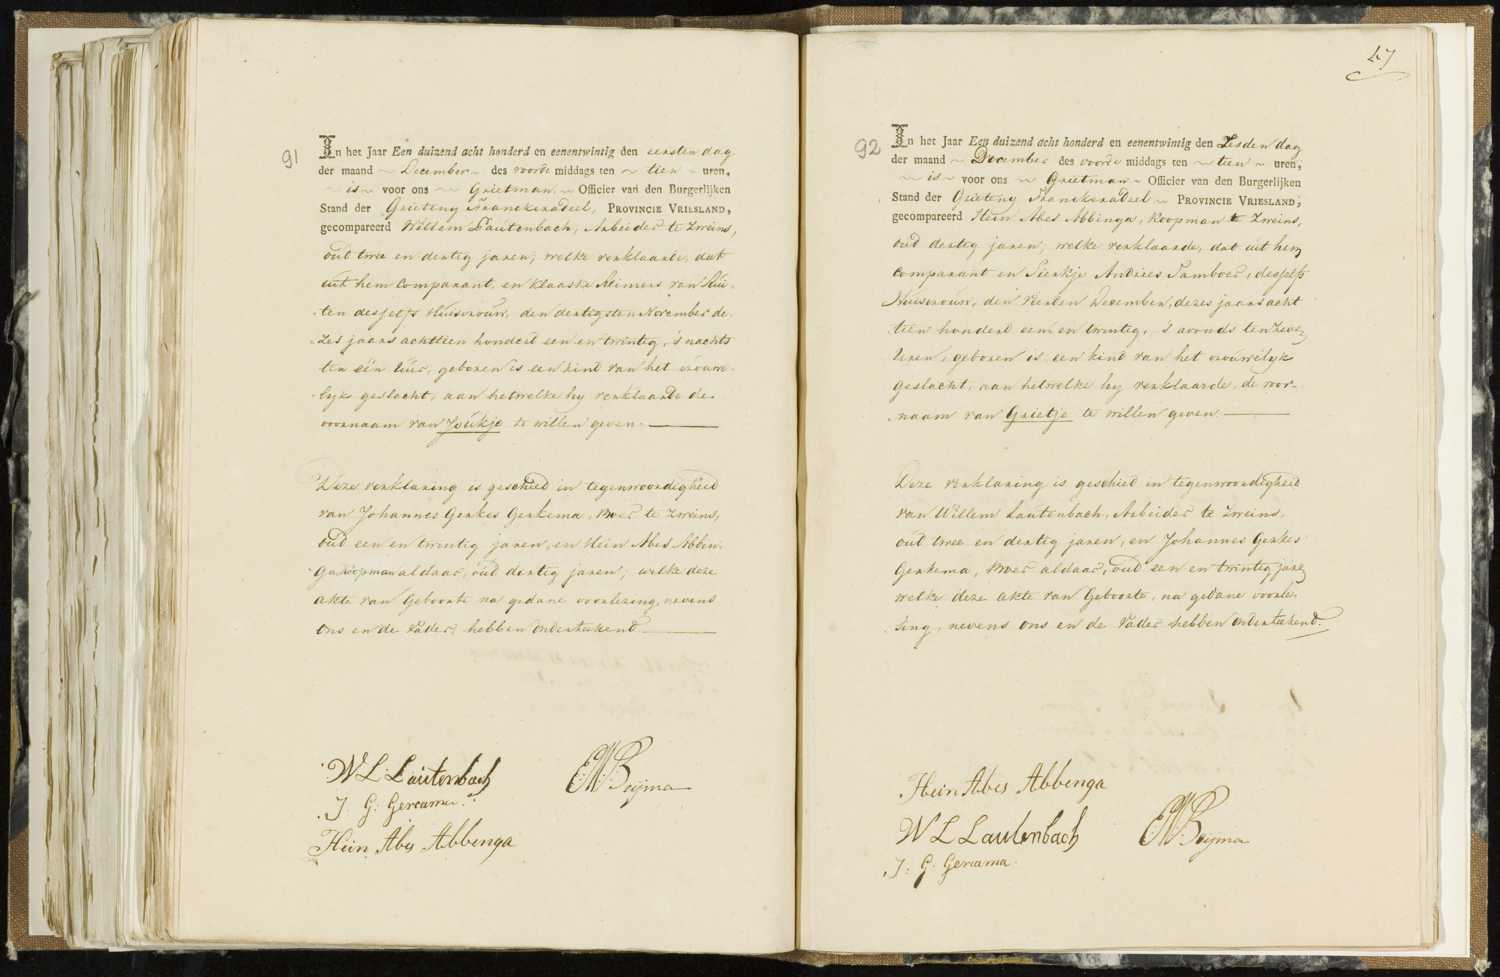 91
In het Jaar Een duizend acht honderd en eenentwintig den eersten dag
der maand ~ December ~ des voorde middags ten ~ tien ~ uren,
~ is ~ voor ons ~ ~ Grietman. ~ Officier van den Burgerlijken
Stand der Grieteny Franekeradeel, PROVINCIE VRIESLAND,
gecompareerd Willem Lautenbach, Arbeider te Zweins,
oud twee en dertig jaren, welke verklaarde, dat
uit hem Comparant, en Klaaske Reimers van Hui-
ten desselfs Huisvrouw, den dertigsten November de-
zes jaars achttien honderd een en twintig, 's nachts
ten één uur, geboren is een kind van het vrouwe-
lyk geslacht, aan hetwelke hy verklaarde de
voornaam van Joukje te willen geven. —
Deze verklaring is geschied in tegenwoordigheid
van Johannes Gerkes Gerkema, Boer te Zweins,
oud een en twintig jaren, en Hein Abes Abben-
ga koopman aldaar, oud dertig jaren; welke deze
akte van Geboorte na gedane voorlezing, nevens
ons en de Vader, hebben ondertekend —
W L Lautenbach
J. G: Gercama
Hein Abes Abbenga
47
92
In het Jaar Een duizend acht honderd en eenentwintig den Zesden dag
der maand ~ December des voorde middags ten ~ tien ~ uren,
~ is ~ voor ons ~ Grietman ~ Officier van den Burgerlijken
Stand der Grieteny Franekeradeel ~ PROVINCIE VRIESLAND,
gecompareerd Hein Abes Abbenga, Koopman te Zweins,
oud dertig jaren, welke verklaarde, dat uit hem
Comparant en Sierkje Andries Tamboer, desselfs
Huisvrouw, den vierden December, dezes jaars acht
tien honderd een en twintig, 's avonds ten zeven
Uren, geboren is een kind van het vrouwelyk
geslacht, aan hetwelke hy verklaarde, de voor-
naam van Grietje te willen geven —
Deze verklaring is geschied in tegenwoordigheid
van Willem Lautenbach, Arbeider te Zweins,
oud twee en dertig jaren, en Johannes Gerkes
Gerkema, Boer aldaar, oud een en twintig jaren
welke deze akte van Geboorte, na gedane voorle-
sing, nevens ons en de Vader hebben ondertekend.
Hein Abes Abbenga
W L Lautenbach
J: G: Gercama